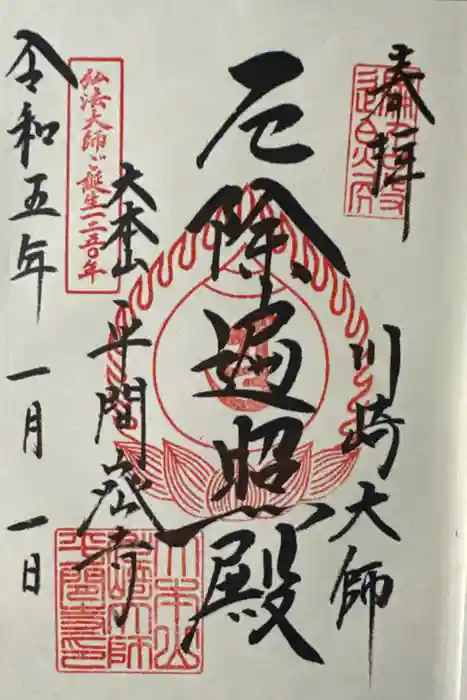 奉拝
川崎大師
厄除遍照殿
大本山
平間寺
弘法大師ご誕生一二五〇年
令和五年一月一日